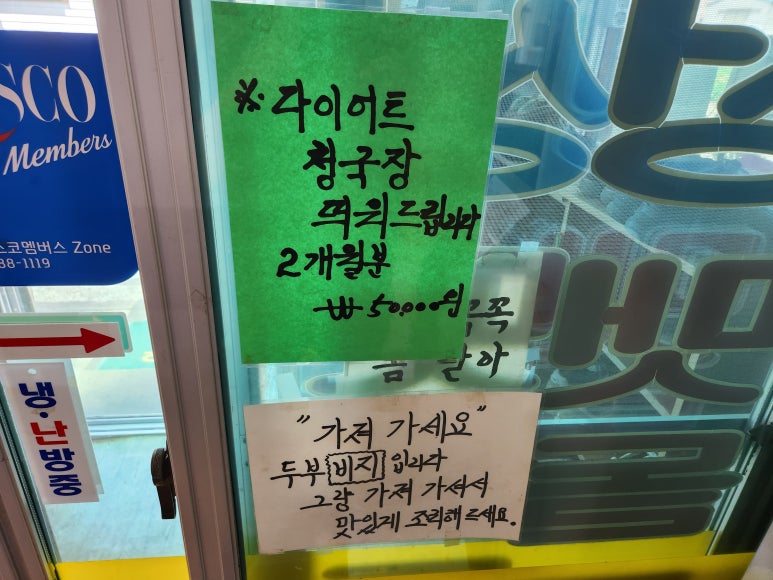 SCO
Members
스코멤버스 Zone
88-1119
냉·난방중
※. 다이어트
청국장
띄워드립니다
2개월분
₩ 50,000원
쪽
달아
"가져 가세요"
두부 비지 입니다
그랑 가져 가셔서
맛있게 조리해 드세요.